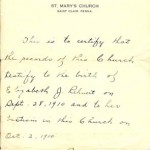 ST. MARY'S CHURCH
SAINT CLAIR, PENNA.
This is to certify that
the records of this Church
testify to the birth of
Elizabeth J.
Sept. 28, 1910 and to her
in this Church on
Oct. 2, 1910.